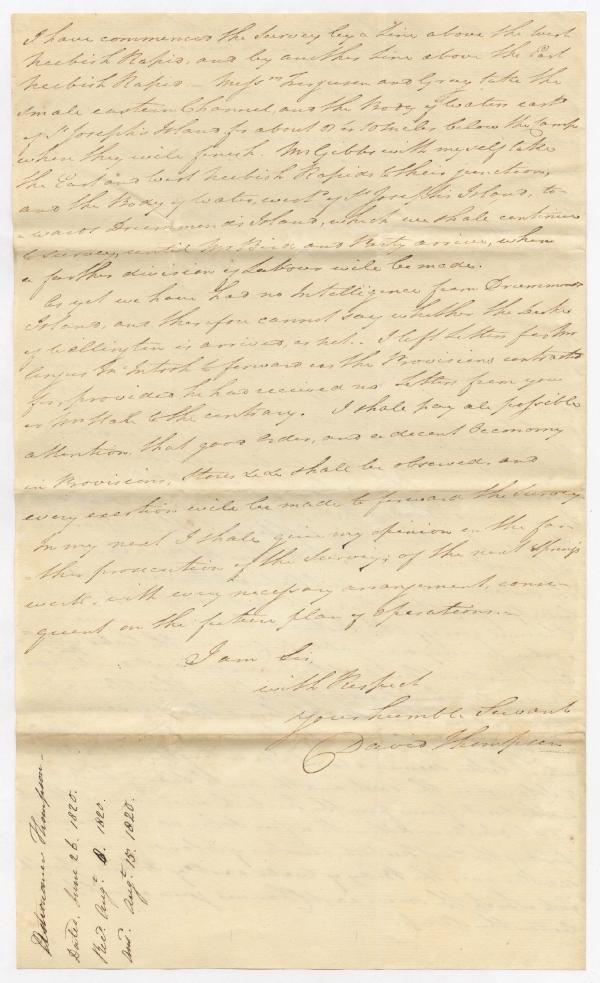 I have commenced the Survey by a Line above the West
Neebish Rapid, and by another Line above the East
Neebish Rapid. Messrs Ferguson and Gray take the
small eastern Channel, and the Body of Water east
of St Joseph's Island for about 8 or 10 Miles below the Camp
where they will finish. Mr Gibbs with myself take
the East and West Neebish Rapids to their junction,
and the Body of Water, west of St Joseph's Island, to-
-wards Drummond's Island, which we shall continue
to survey, until Mr Bird and Party arrive, when
a further division of Labour will be made.
As yet we have had no Intelligence from Drummond
Island, and therefore cannot say whether the Duke
of Wellington is arrived, or not. I left Letters for Mr
Angus McIntosh to forward us the Provisions contracted
for, provided he had received no Letters from you
or Mr Hale to the contrary. I shall pay all possible
attention, that good Order, and a decent Oeconomy
in Provisions, Stores &c &c shall be observed, and
every exertion will be made to forward the Survey.
In my next I shall give my opinion on the far-
-ther prosecution of the Survey, of the next Springs
work, with every necessary arrangement, conse-
-quent on the future plan of Operations.
I am Sir,
with Respect
Your humble Servant
David Thompson
Astronomer Thompson
Dated, June 26. 1820.
Recd. Augt. 8. 1820.
And. Augt. 15. 1820.